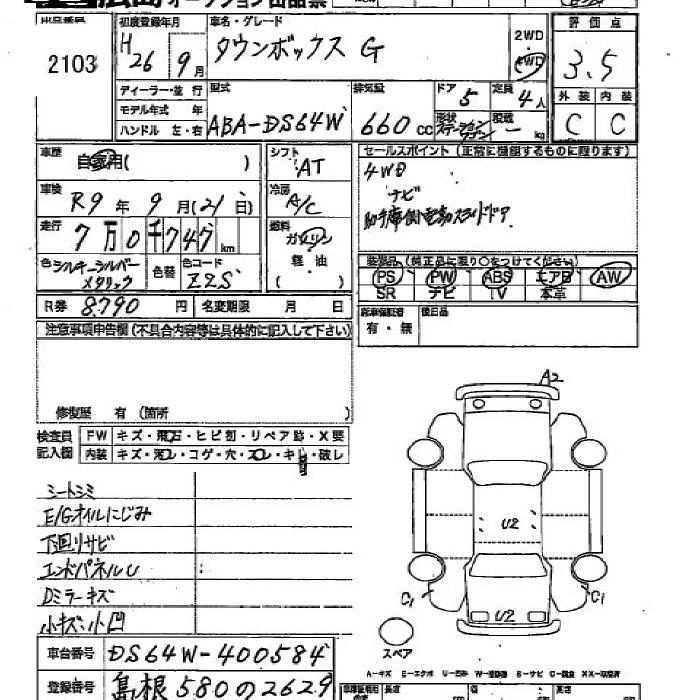 オークション出品票
出品番号 初度登録年月 車名・グレード
2103 H26 9月 タウンボックス G 2WD 4WD
評価点
3.5
ディーラー・並行 型式 排気量 ドア 定員
モデル年式 年 5 4人
ハンドル 左・右 ABA-DS64W 660cc 形状 ステーションワゴン 積載 ー kg
外装 内装
C C
車歴 自家用( ) シフト AT
セールスポイント (正常に機能するものに限ります)
4WD
ナビ
助手席側電動スライドドア
車検 R9年9月(21日) 冷房 A/C
走行 7万0千747km 燃料 ガソリン
軽油
( )
色 シルキーシルバーメタリック 色替 色コード Z2S
装備品 (純正品に限り○をつけてください)
PS PW ABS エアB AW
SR ナビ TV 本革
R券 8790円 名変期限 月 日
新車保証書 後日品
有・無
注意事項申告欄 (不具合内容等は具体的に記入して下さい)
修復歴 有 (箇所 )
検査員 FW キズ・飛石・ヒビ割・リペア跡・X要
記入欄 内装 キズ・汚レ・コゲ・穴・スレ・キレ・破レ
シートシミ
E/Gオイルにじみ
下回りサビ
エンドパネルU
Dミラーキズ
小キズ・小凹
A2
U2
C1
C1
U2
スペア
車台番号 DS64W-400584
登録番号 島根580の2629
A-キズ E-エクボ U-凹み S-サビ C-腐食